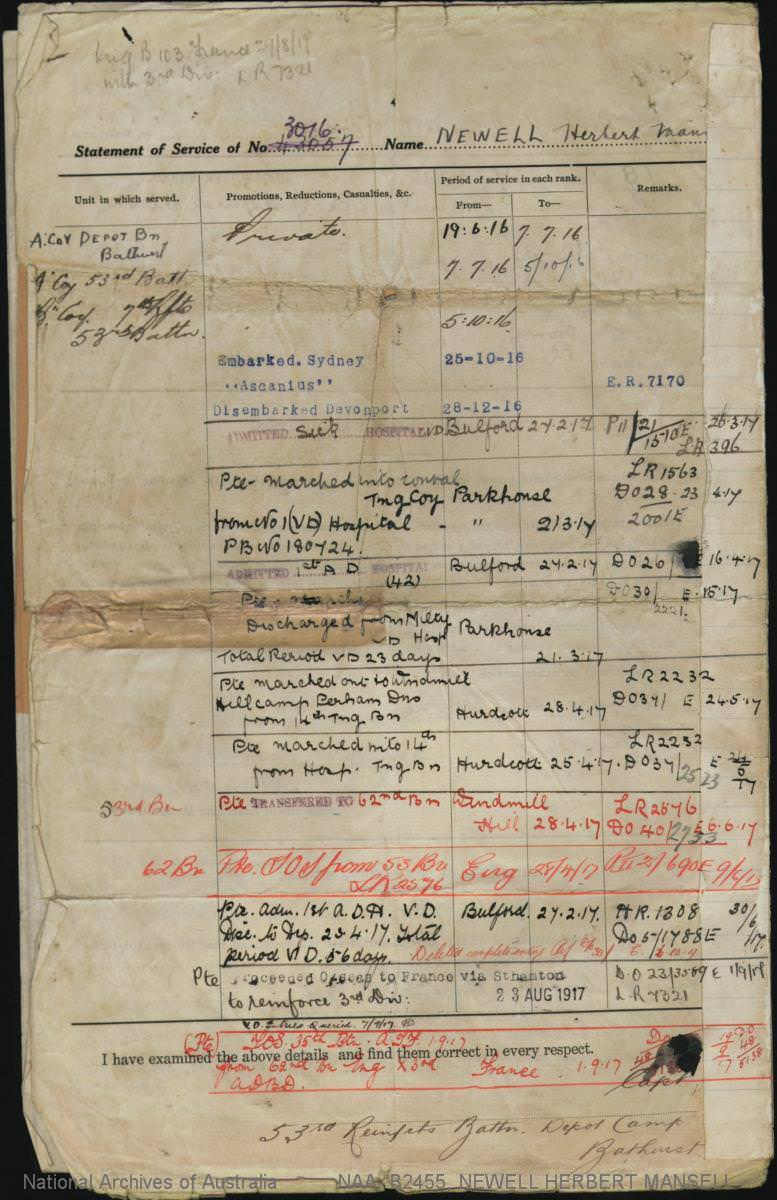 Eng B 103 France 29/8/17
with 3rd Div. LR7321
3016.
Statement of Service of No. 43057 Name NEWELL Herbert Man
Unit in which served. Promotions, Reductions, Casualties, &c. Period of service in each rank. Remarks.
From— To—
A. Coy DEPOT Bn Private. 19.6.16 7.7.16
Bathurst
A Coy 53rd Batt 7.7.16 5/10/16
Coy. 7th Rfts
53rd Battn. 5:10:16
Embarked. Sydney 25-10-16
"Ascanius" E.R.7170
Disembarked Devonport 28-12-16
ADMITTED Sick HOSPITAL VD Bulford 27.2.17 P11/21/1510E 26.3.17
LR 396
Pte- marched into conval LR1563
Tng Coy Parkhouse DO28. 23 4.17
from No 1 (VD) Hospital - " 21.3.17 2001E
PB No 180724.
ADMITTED 1st A D HOSPITAL Bulford 27.2.17 DO26/ E 16.4.17
(42)
Pte- march DO30/ E.
2221.
Discharged from Milty Parkhouse
VD Hosp
Total Period VD 23 days 21.3.17
Pte marched out to Windmill LR2232
Hill camp Perham Dns DO37/ E 24.5.17
from 14th Tng Bn Hurdcott 28.4.17
Pte marched into 14th LR2232
from Hosp. Tng Bn Hurdcott 25.4.17. DO37/2523 E 24/5/17
53rd Bn Pte TRANSFERED TO 62nd Bn Windmill LR2576
Hill 28.4.17 DO 40/2753 E 6.6.17
62 Bn Pte. SOS from 53 Bn Eng 28/4/17 690E
LR 2576
Pte. Adm. 1st A.D.H. V.D. Bulford. 27.2.17. HR.1308 30/6/17.
Disc. to Dep. 23.4.17. Total DO 57/1788E
period V.D. 56 days.
Pte Proceeded O/seas to France via Sthamton DO 23/3589 E 1/9/17
to reinforce 3rd Div: 23 AUG 1917 L.R 7321
(Pte) TOS. 35th Btn. A.I.F. 1.9.17
I have examined the above details and find them correct in every respect.
from 62nd Bn Eng France. 1.9.17
A.D.B.D. Capt
53rd Reinfcts Battn. Depot Camp
Bathurst
National Archives of Australia NAA: B2455, NEWELL HERBERT MANSELL